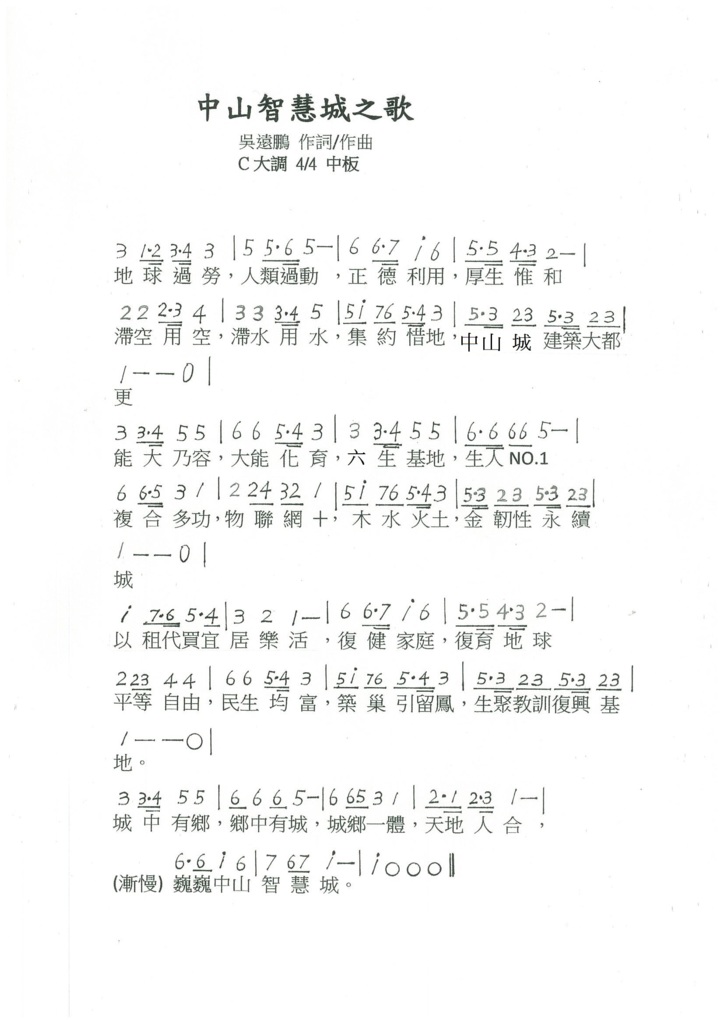 中山智慧城之歌
吳遠鵬 作詞/作曲
C大調 4/4 中板
3 1·2 3·4 3 | 5 5·6 5— | 6 6·7 i 6 | 5·5 4·3 2—|
地 球 過 勞，人類過動 ，正 德 利用，厚生 惟 和
2 2 2·3 4 | 3 3 3·4 5 | 5i 76 5·4 3 | 5·3 23 5·3 23|
滯空 用 空，滯水 用 水，集 約 惜地，中山 城 建築大都
1——0 |
更
3 3·4 5 5 | 6 6 5·4 3 | 3 3·4 5 5 | 6·6 66 5—|
能 大 乃容，大能 化 育，六 生 基地，生人 NO.1
6 6·5 3 1 | 2 24 32 1 | 5i 76 5·4 3 | 5·3 23 5·3 23|
複 合 多功，物 聯 網 十， 木 水 火土，金 韌性 永 續
1——0 |
城
i 7·6 5·4 | 3 2 1—| 6 6·7 i 6 | 5·5 4·3 2—|
以 租代買宜 居 樂 活 ，復 健 家庭，復育 地 球
2 23 4 4 | 6 6 5·4 3 | 5i 76 5·4 3 | 5·3 23 5·3 23 |
平等 自由，民生 均 富，築 巢 引留鳳，生聚教訓復興 基
1———0|
地。
3 3·4 5 5 | 6 6 6 5—| 6 65 3 1 | 2·1 2·3 1—|
城 中 有鄉，鄉中有城，城鄉一體，天地 人 合 ，
6·6 i 6 | 7 67 i—| i 0 0 0 ‖
(漸慢) 巍巍中山 智 慧 城。